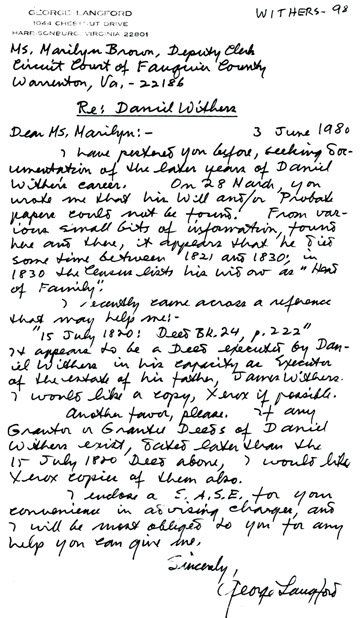 WITHERS-98
GEORGE LANGFORD
1044 CHESTNUT DRIVE
HARRISONBURG, VIRGINIA 22801
Ms. Marilyn Brown, Deputy Clerk
Circuit Court of Fauquier County
Warrenton, Va. - 22186
Re: Daniel Withers
Dear Ms. Marilyn:- 3 June 1980
I have pestered you before, seeking doc-
umentation of the later years of Daniel
Withers career. On 28 March, you
wrote me that his Will and/or Probate
papers could not be found. From var-
ious small bits of information, found
here and there, it appears that he died
some time between 1821 and 1830; in
1830 the Census lists his widow as "Head
of Family".
I recently came across a reference
that may help me:-
"15 July 1820: Deed Bk. 24, p. 222"
It appears to be a Deed executed by Dan-
iel Withers in his capacity as Executor
of the estate of his father, James Withers.
I would like a copy, Xerox if possible.
Another favor, please. If any
Grantor or Grantee Deeds of Daniel
Withers exist, dated later than the
15 July 1820 Deed above, I would like
Xerox copies of them also.
I enclose a S.A.S.E. for your
convenience in advising charges, and
I will be most obliged to you for any
help you can give me.
Sincerely,
George Langford